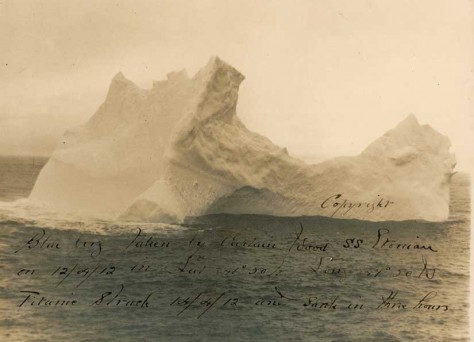 Copyright
Blue berg Taken by Captain Wood SS Etonian
on 12/4/12 in Lat 41° 50 N Lon 50 W
Titanic Struck 14/4/12 and sank in three hours